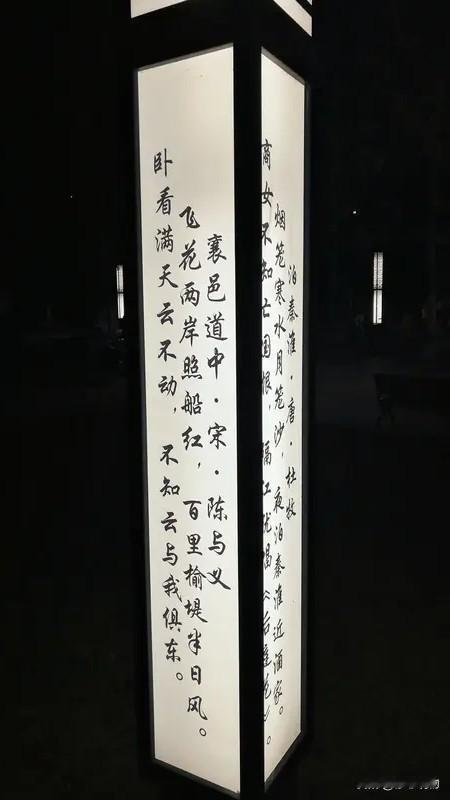 襄邑道中·宋·陈与义
飞花两岸照船红，百里榆堤半日风。
卧看满天云不动，不知云与我俱东。
泊秦淮·唐·杜牧
烟笼寒水月笼沙，夜泊秦淮近酒家。
商女不知亡国恨，隔江犹唱